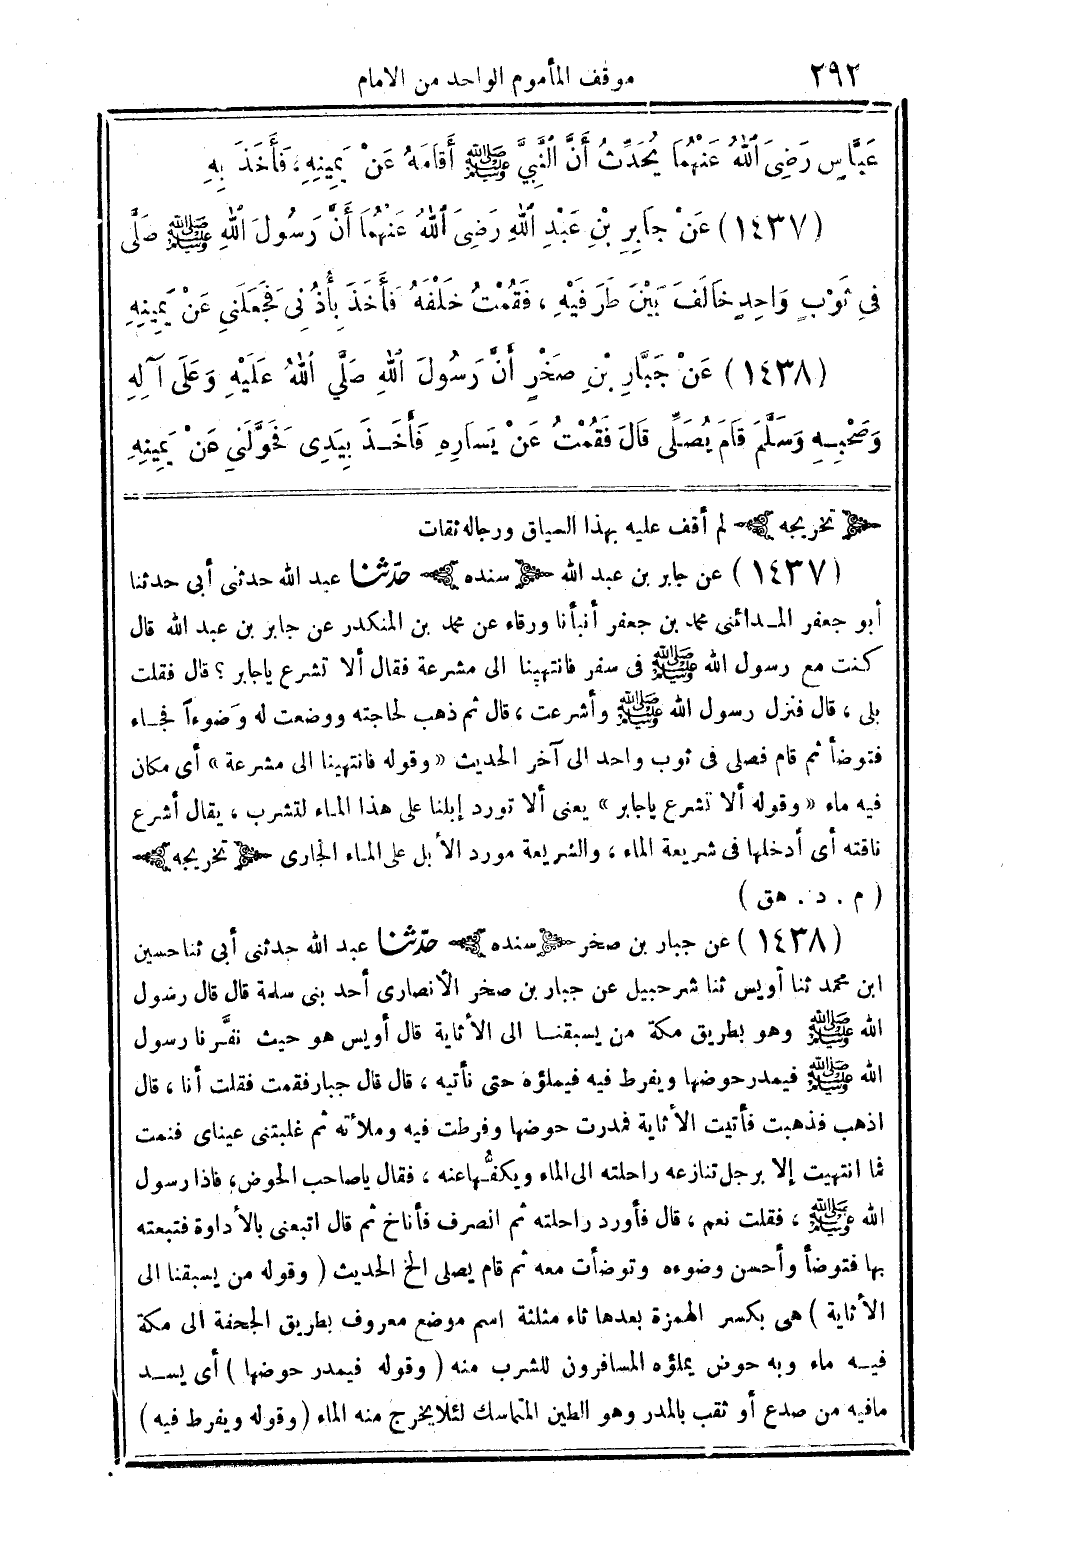 ٢٩٢ موقف المأموم الواحد من الامام
عَبَّاسٍ رَضِيَ اللهُ عَنْهُمَا يُحَدِّثُ أَنَّ النَّبِيَّ ﷺ أَقَامَهُ عَنْ يَمِينِهِ، فَأَخَذَ بِهِ
(١٤٣٧) عَنْ جَابِرِ بْنِ عَبْدِ اللهِ رَضِيَ اللهُ عَنْهُمَا أَنَّ رَسُولَ اللهِ ﷺ صَلَّى
فِي ثَوْبٍ وَاحِدٍ خَالَفَ بَيْنَ طَرَفَيْهِ، فَقُمْتُ خَلْفَهُ فَأَخَذَ بِأُذُنِى فَجَعَلَنِي عَنْ يَمِينِهِ
(١٤٣٨) عَنْ جَبَّارِ بْنِ صَخْرٍ أَنَّ رَسُولَ اللهِ صَلَّي اللهُ عَلَيْهِ وَعَلَى آلِهِ
وَصَحْبِهِ وَسَلَّمَ قَامَ يُصَلِّى قَالَ فَقُمْتُ عَنْ يَسَارِهِ فَأَخَذَ بِيَدِى فَحَوَّلَنِي عَنْ يَمِينِهِ
﴿ تخريجه ﴾ لم أقف عليه بهذا السياق ورجاله ثقات
(١٤٣٧) عن جابر بن عبد الله ﴿ سنده ﴾ حدّثنا عبد الله حدثنى أبى حدثنا
أبو جعفر المدائنى محمد بن جعفر أنبأنا ورقاء عن محمد بن المنكدر عن جابر بن عبد الله قال
كنت مع رسول الله ﷺ فى سفر فانتهينا الى مشرعة فقال ألا تشرع ياجابر ؟ قال فقلت
بلى ، قال فنزل رسول الله ﷺ وأشرعت ، قال ثم ذهب لحاجته ووضعت له وَضوءاً فجاء
فتوضأ ثم قام فصلى فى ثوب واحد الى آخر الحديث « وقوله فانتهينا الى مشرعة » أى مكان
فيه ماء « وقوله ألا تشرع ياجابر » يعنى ألا تورد إبلنا على هذا الماء لتشرب ، يقال أشرع
ناقته أى أدخلها فى شريعة الماء ، والشريعة مورد الأبل على الماء الجارى ﴿ تخريجه ﴾
( م . د . هق )
(١٤٣٨) عن جبار بن صخر ﴿ سنده ﴾ حدّثنا عبد الله حدثنى أبى ثنا حسين
ابن محمد ثنا أويس ثنا شرحبيل عن جبار بن صخر الأنصارى أحد بنى سلمة قال قال رسول
الله ﷺ وهو بطريق مكة من يسبقنا الى الأثاية قال أويس هو حيث نفَّرنا رسول
الله ﷺ فيمدر حوضها ويفرط فيه فيملؤه حتى نأتيه ، قال قال جبار فقمت فقلت أنا ، قال
اذهب فذهبت فأتيت الأثاية فمدرت حوضها وفرطت فيه وملأته ثم غلبتنى عيناى فنمت
فما انتهيت إلا برجل تنازعه راحلته الى الماء ويكفُّها عنه ، فقال ياصاحب الحوض، فاذا رسول
الله ﷺ ، فقلت نعم ، قال فأورد راحلته ثم انصرف فأناخ ثم قال اتبعنى بالأداوة فتبعته
بها فتوضأ وأحسن وضوءه وتوضأت معه ثم قام يصلى الخ الحديث ( وقوله من يسبقنا الى
الأثاية ) هى بكسر الهمزة بعدها ثاء مثلثة اسم موضع معروف بطريق الجحفة الى مكة
فيه ماء وبه حوض يملؤه المسافرون للشرب منه ( وقوله فيمدر حوضها ) أى يسد
مافيه من صدع أو ثقب بالمدر وهو الطين المتماسك لئلا يخرج منه الماء ( وقوله ويفرط فيه )